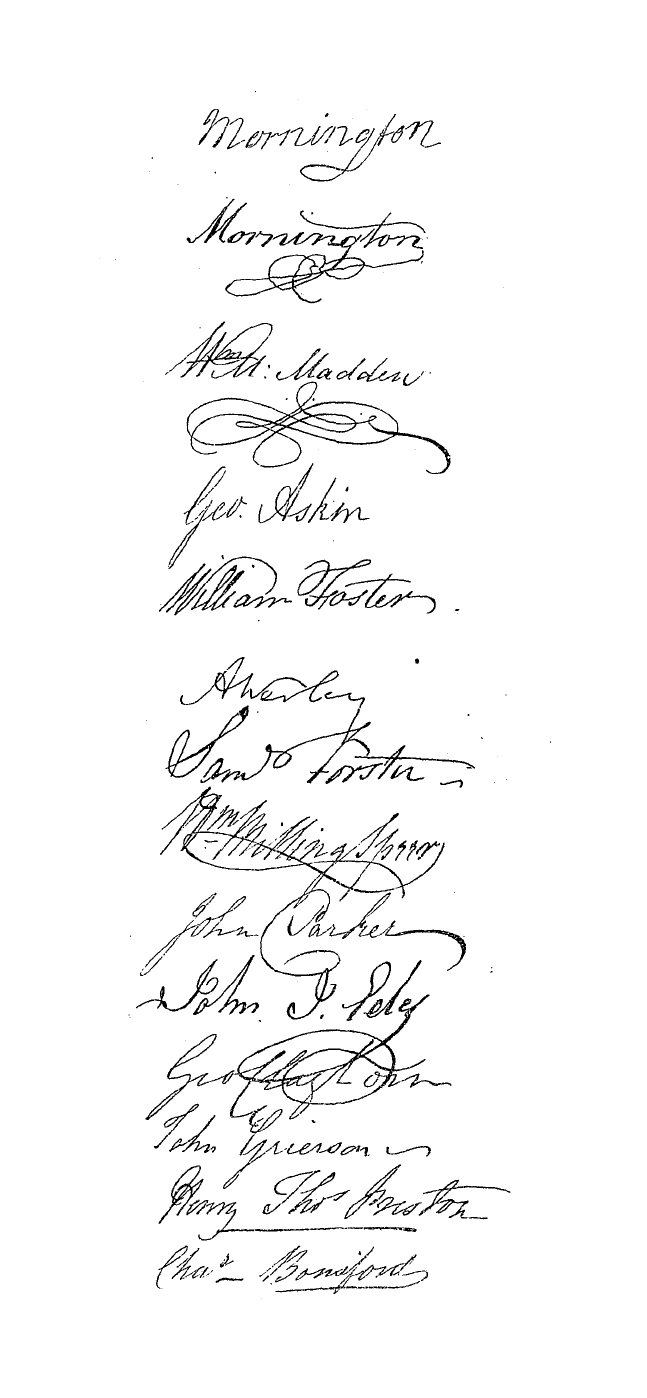 Mornington
Mornington
Wm M: Madden
Geo. Askin
William Foster.
Saml Forster
Wm Milling
John Parker
John J. Edey
Geo Clayton
John Grierson
Henry Thos Preston
Chas Bonsford